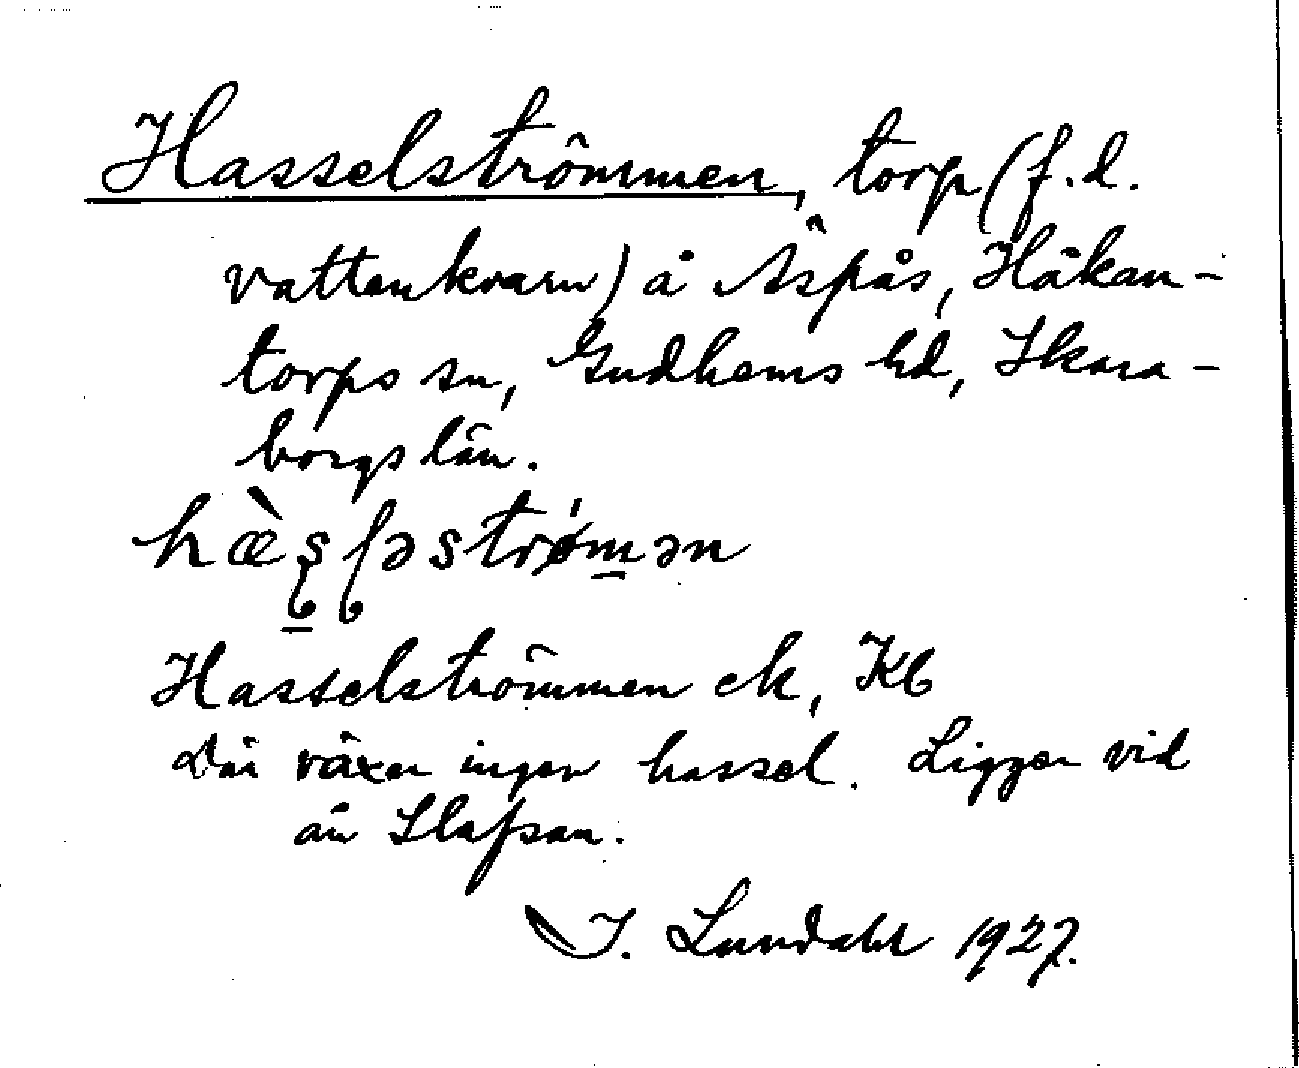 Hasselströmmen, torp (f.d.
vattenkvarn) å Äspås, Håkan-
torps sn, Gudhems hd, Skara-
borgs län.
Hasselströmmen ek, Kb
Där växer ingen hassel. Ligger vid
ån Slafsan.
I. Lundahl 1927.